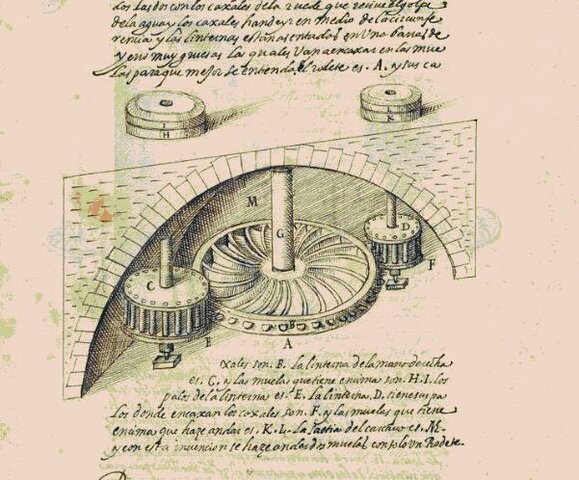 los dan con los caxales de la rueda que recive el golpe
de la agua y los caxales han de yr en medio de la circunfe
rencia y las linternas estan asentados en una barras de
yerro muy gruesas las quales van a encaxar en las mue
las para que mejor se entienda, el rodete es .A. y sus ca
I
H
L
K
M
G
D
C
F
B
E
A
xales son .B. la linterna de la mano derecha
es .C. y las muelas que tiene encima son .H.I. los
palos de la linterna es .E. la linterna .D. tiene sus pa
los donde encaxan los caxales son .F. y las muelas que tiene
encima que haze andar es .K.L. la del carcavo es .M.
y con esta invencion se haze andar dos muelas con solo un Rodete